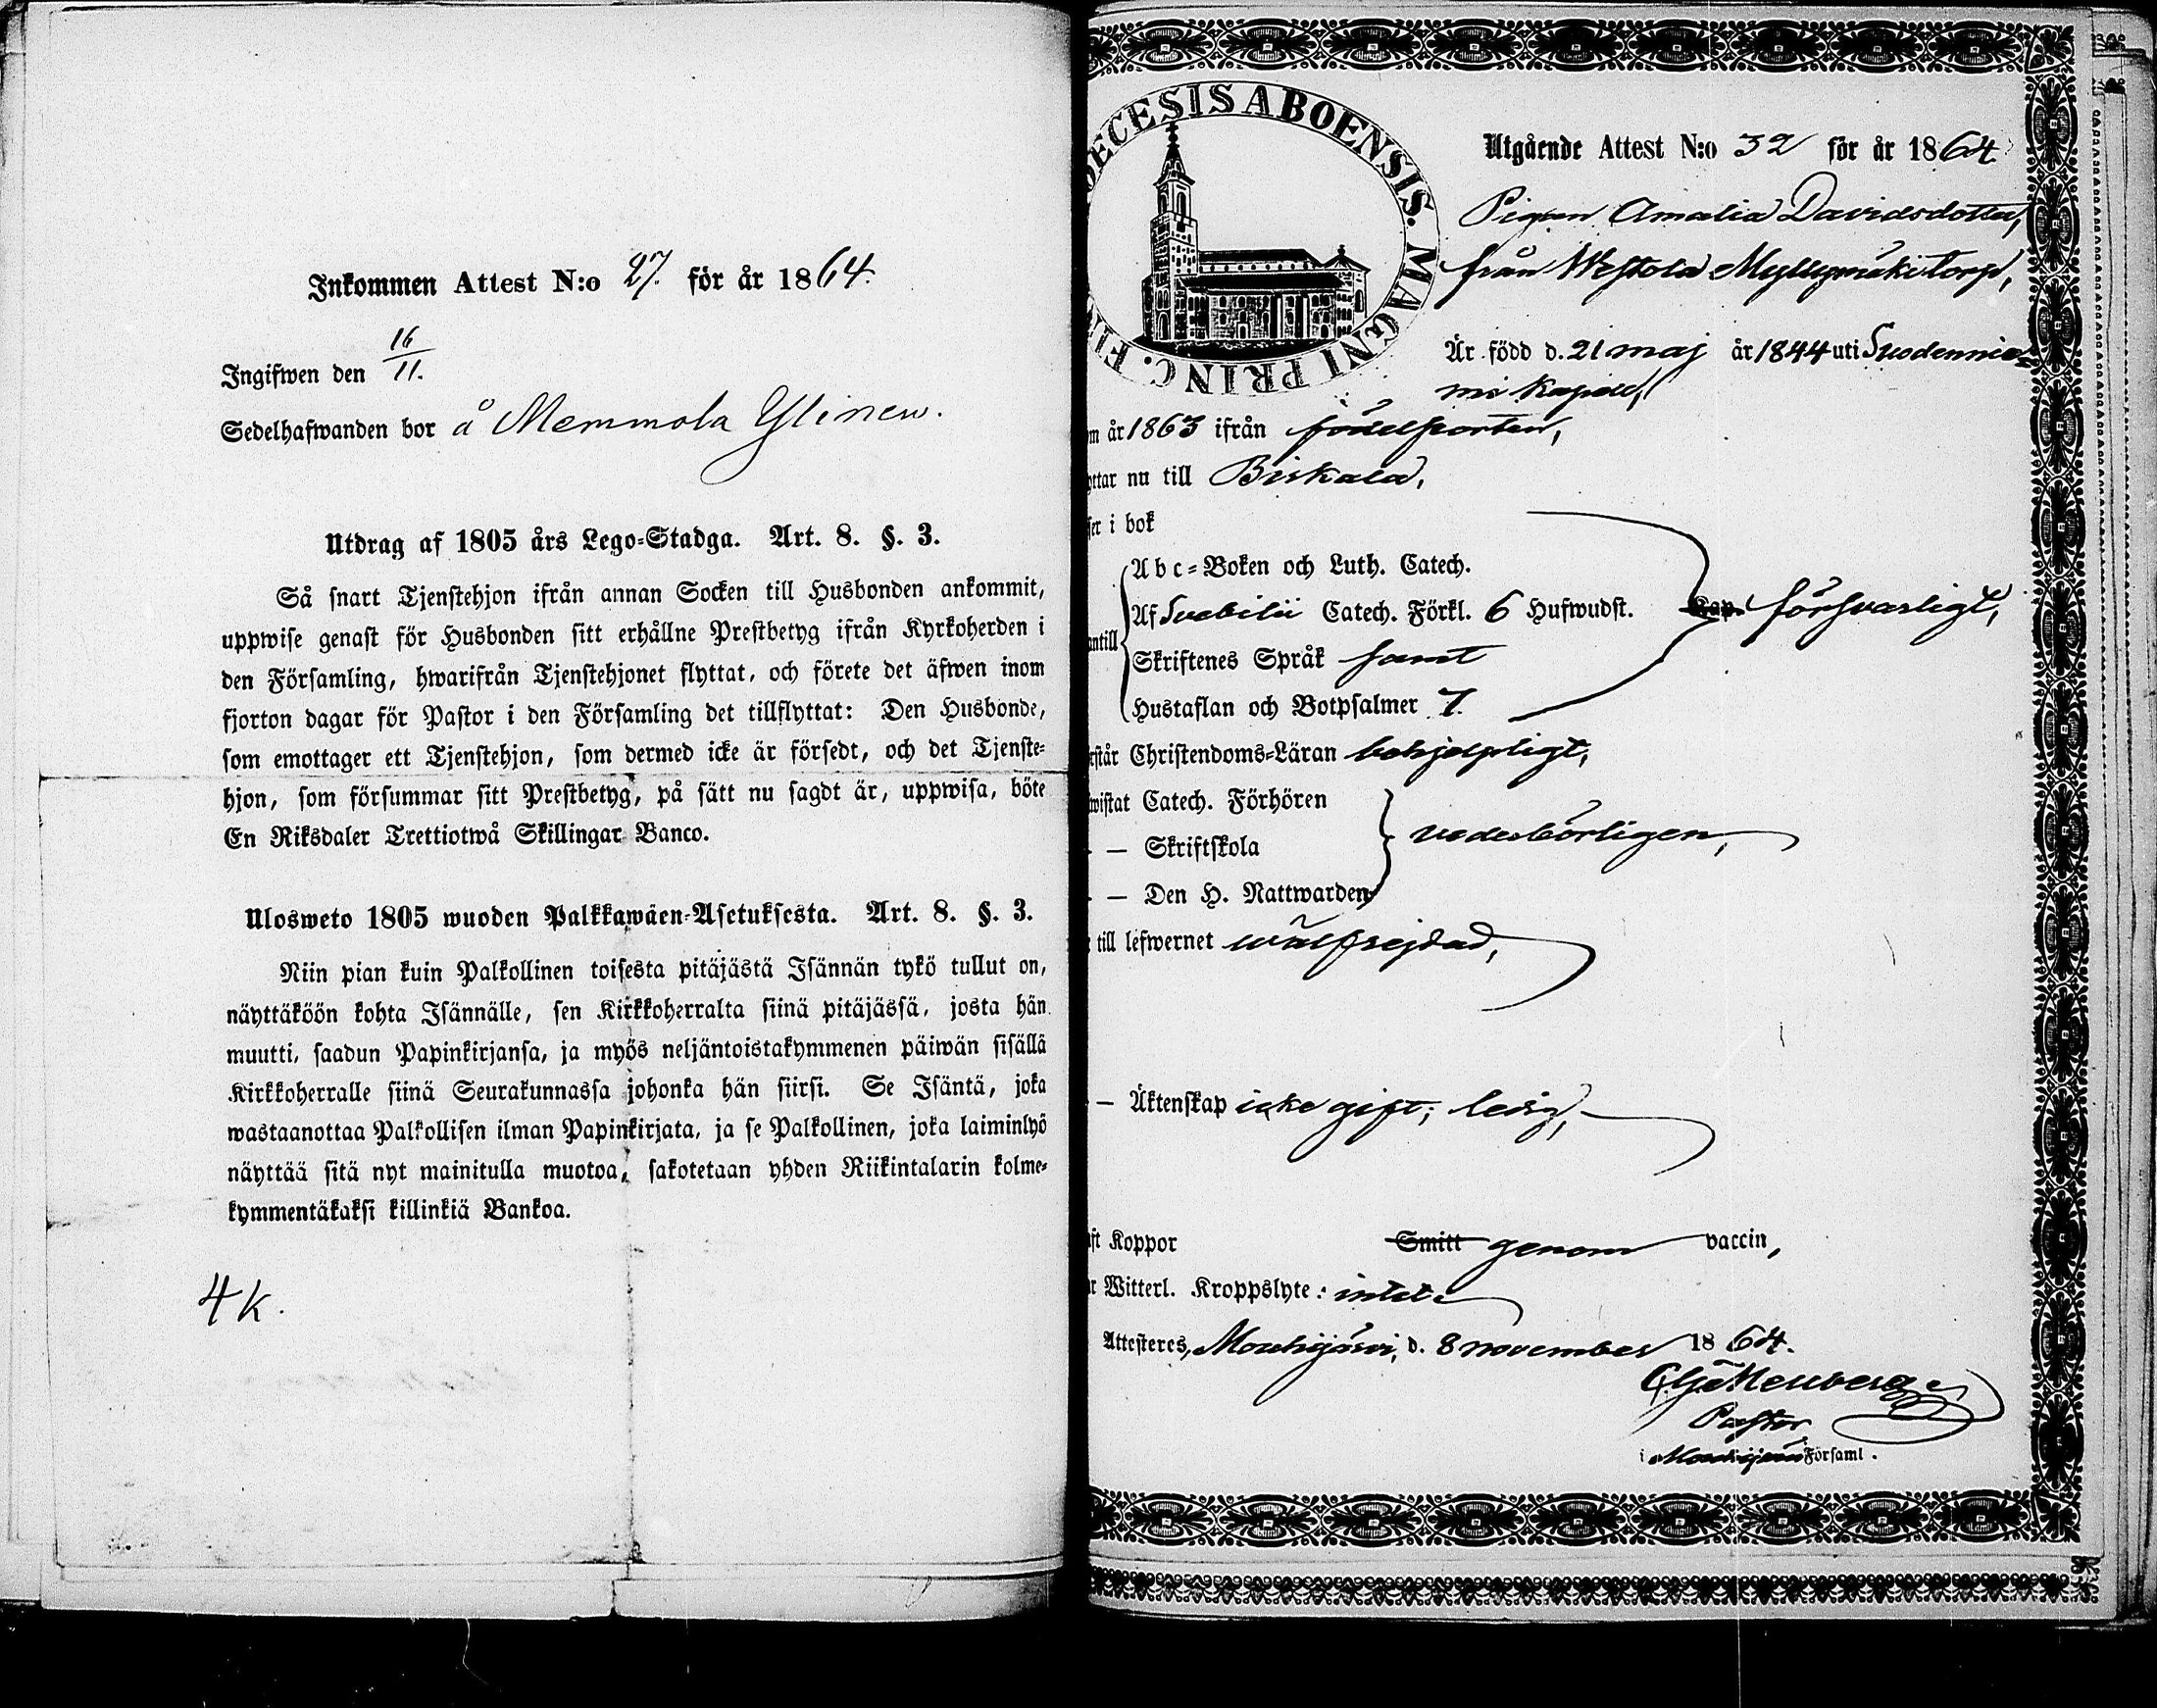 Inkommen Attest N:o 27. för år 1864.
Ingifwen den 16/11.
Sedelhafwanden bor å Memmola Ylinen.
Utdrag af 1805 års Lego-Stadga. Art. 8. §. 3.
Så snart Tjenstehjon ifrån annan Socken till Husbonden ankommit,
uppwise genast för Husbonden sitt erhållne Prestbetyg ifrån Kyrkoherden i
den Församling, hwarifrån Tjenstehjonet flyttat, och förete det äfwen inom
fjorton dagar för Pastor i den Församling det tillflyttat: Den Husbonde,
som emottager ett Tjenstehjon, som dermed icke är försedt, och det Tjenste-
hjon, som försummar sitt Prestbetyg, på sätt nu sagdt är, uppwisa, böte
En Riksdaler Trettiotwå Skillingar Banco.
Ulosweto 1805 wuoden Palkkawäen-Asetuksesta. Art. 8. §. 3.
Niin pian kuin Palkollinen toisesta pitäjästä Isännän tykö tullut on,
näyttäköön kohta Isännälle, sen Kirkkoherralta siinä pitäjässä, josta hän
muutti, saadun Papinkirjansa, ja myös neljäntoistakymmenen päiwän sisällä
Kirkkoherralle siinä Seurakunnassa johonka hän siirsi. Se Isäntä, joka
wastaanottaa Palkollisen ilman Papinkirjata, ja se Palkollinen, joka laiminlyö
näyttää sitä nyt mainitulla muotoa, sakotetaan yhden Riikintalarin kolme-
kymmentäkaksi killinkiä Bankoa.
4 k.
ECESIS ABOENSIS. MAGNI PRINC. FIN
Utgående Attest N:o 32 för år 1864
Pigan Amalia Davidsdotter,
från Westola Myllymäki torp,
Är född d. 21 maj år 1844 uti Suodennie-
mi kapell,
m år 1863 ifrån födelseorten,
yttar nu till Birkala,
ser i bok
Abc-Boken och Luth. Catech.
Af Svebilii Catech. Förkl. 6 Hufwudst. Kap. försvarligt,
antill
Skriftenes Språk samt
Hustaflan och Botpsalmer 7.
rstår Christendoms-Läran behjelpligt,
wistat Catech. Förhören
— Skriftskola vederbörligen,
— Den H. Nattwarden
till lefwernet wälfrejdad,
— Äktenskap icke gift; ledig,
ft Koppor Smitt genom vaccin,
r Witterl. Kroppslyte: intet
Attesteres, Mouhijärvi, d. 8 november 1864.
Pastor
i Mouhijärvi Församl.